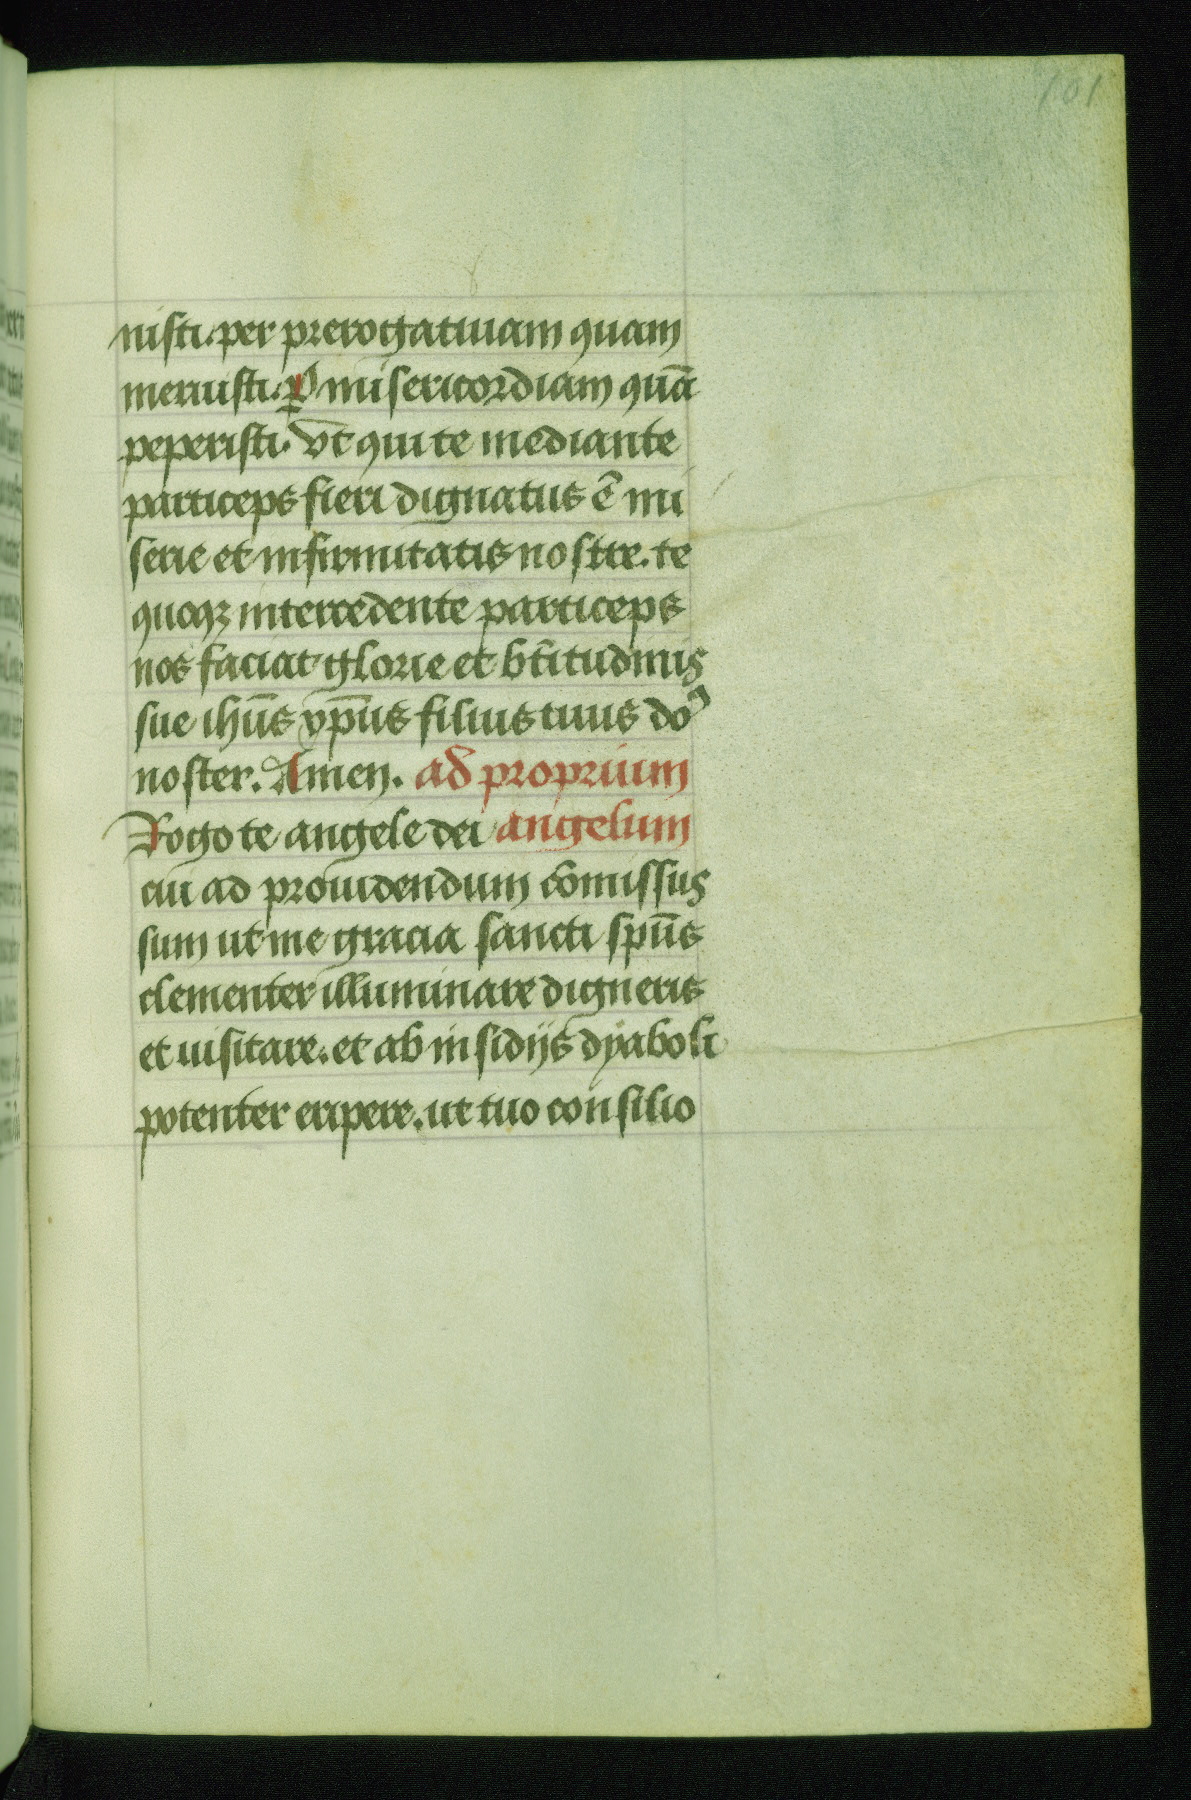 101
nisti. per prerogatiuam quam
meruisti. ꝑ misericordiam quā
peperisti. Vt qui te mediante
particeps fieri dignatus ē mi
serie et infirmitatis nostre. te
quoqꝫ intercedente particeps
nos faciat glorie et bt̄itudinis
sue ihūs xp̄us filius tuus do
noster. Amen. ad proprium
Rogo te angele dei angelum
cui ad prouidendum cōmissus
sum ut me gracia sancti sp̄us
clementer illuminare digneris
et uisitare. et ab insidijs dyaboli
potenter eripere. ut tuo consilio